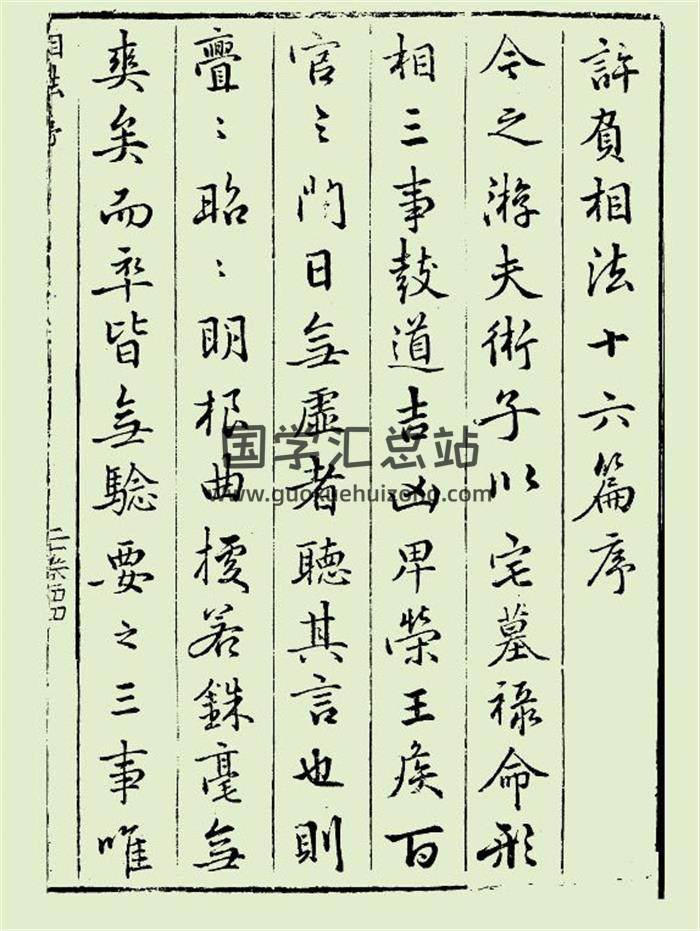 許負相法十六篇序
今之游夫術子以宅墓祿命形
相三事鼓道吉凶卑榮王侯百
官之門日無虛者聽其言也則
亹〻昭〻明根曲援若銖毫無
爽矣而率皆無驗要之三事唯
国学汇总站
www.guoxuehuizong.com